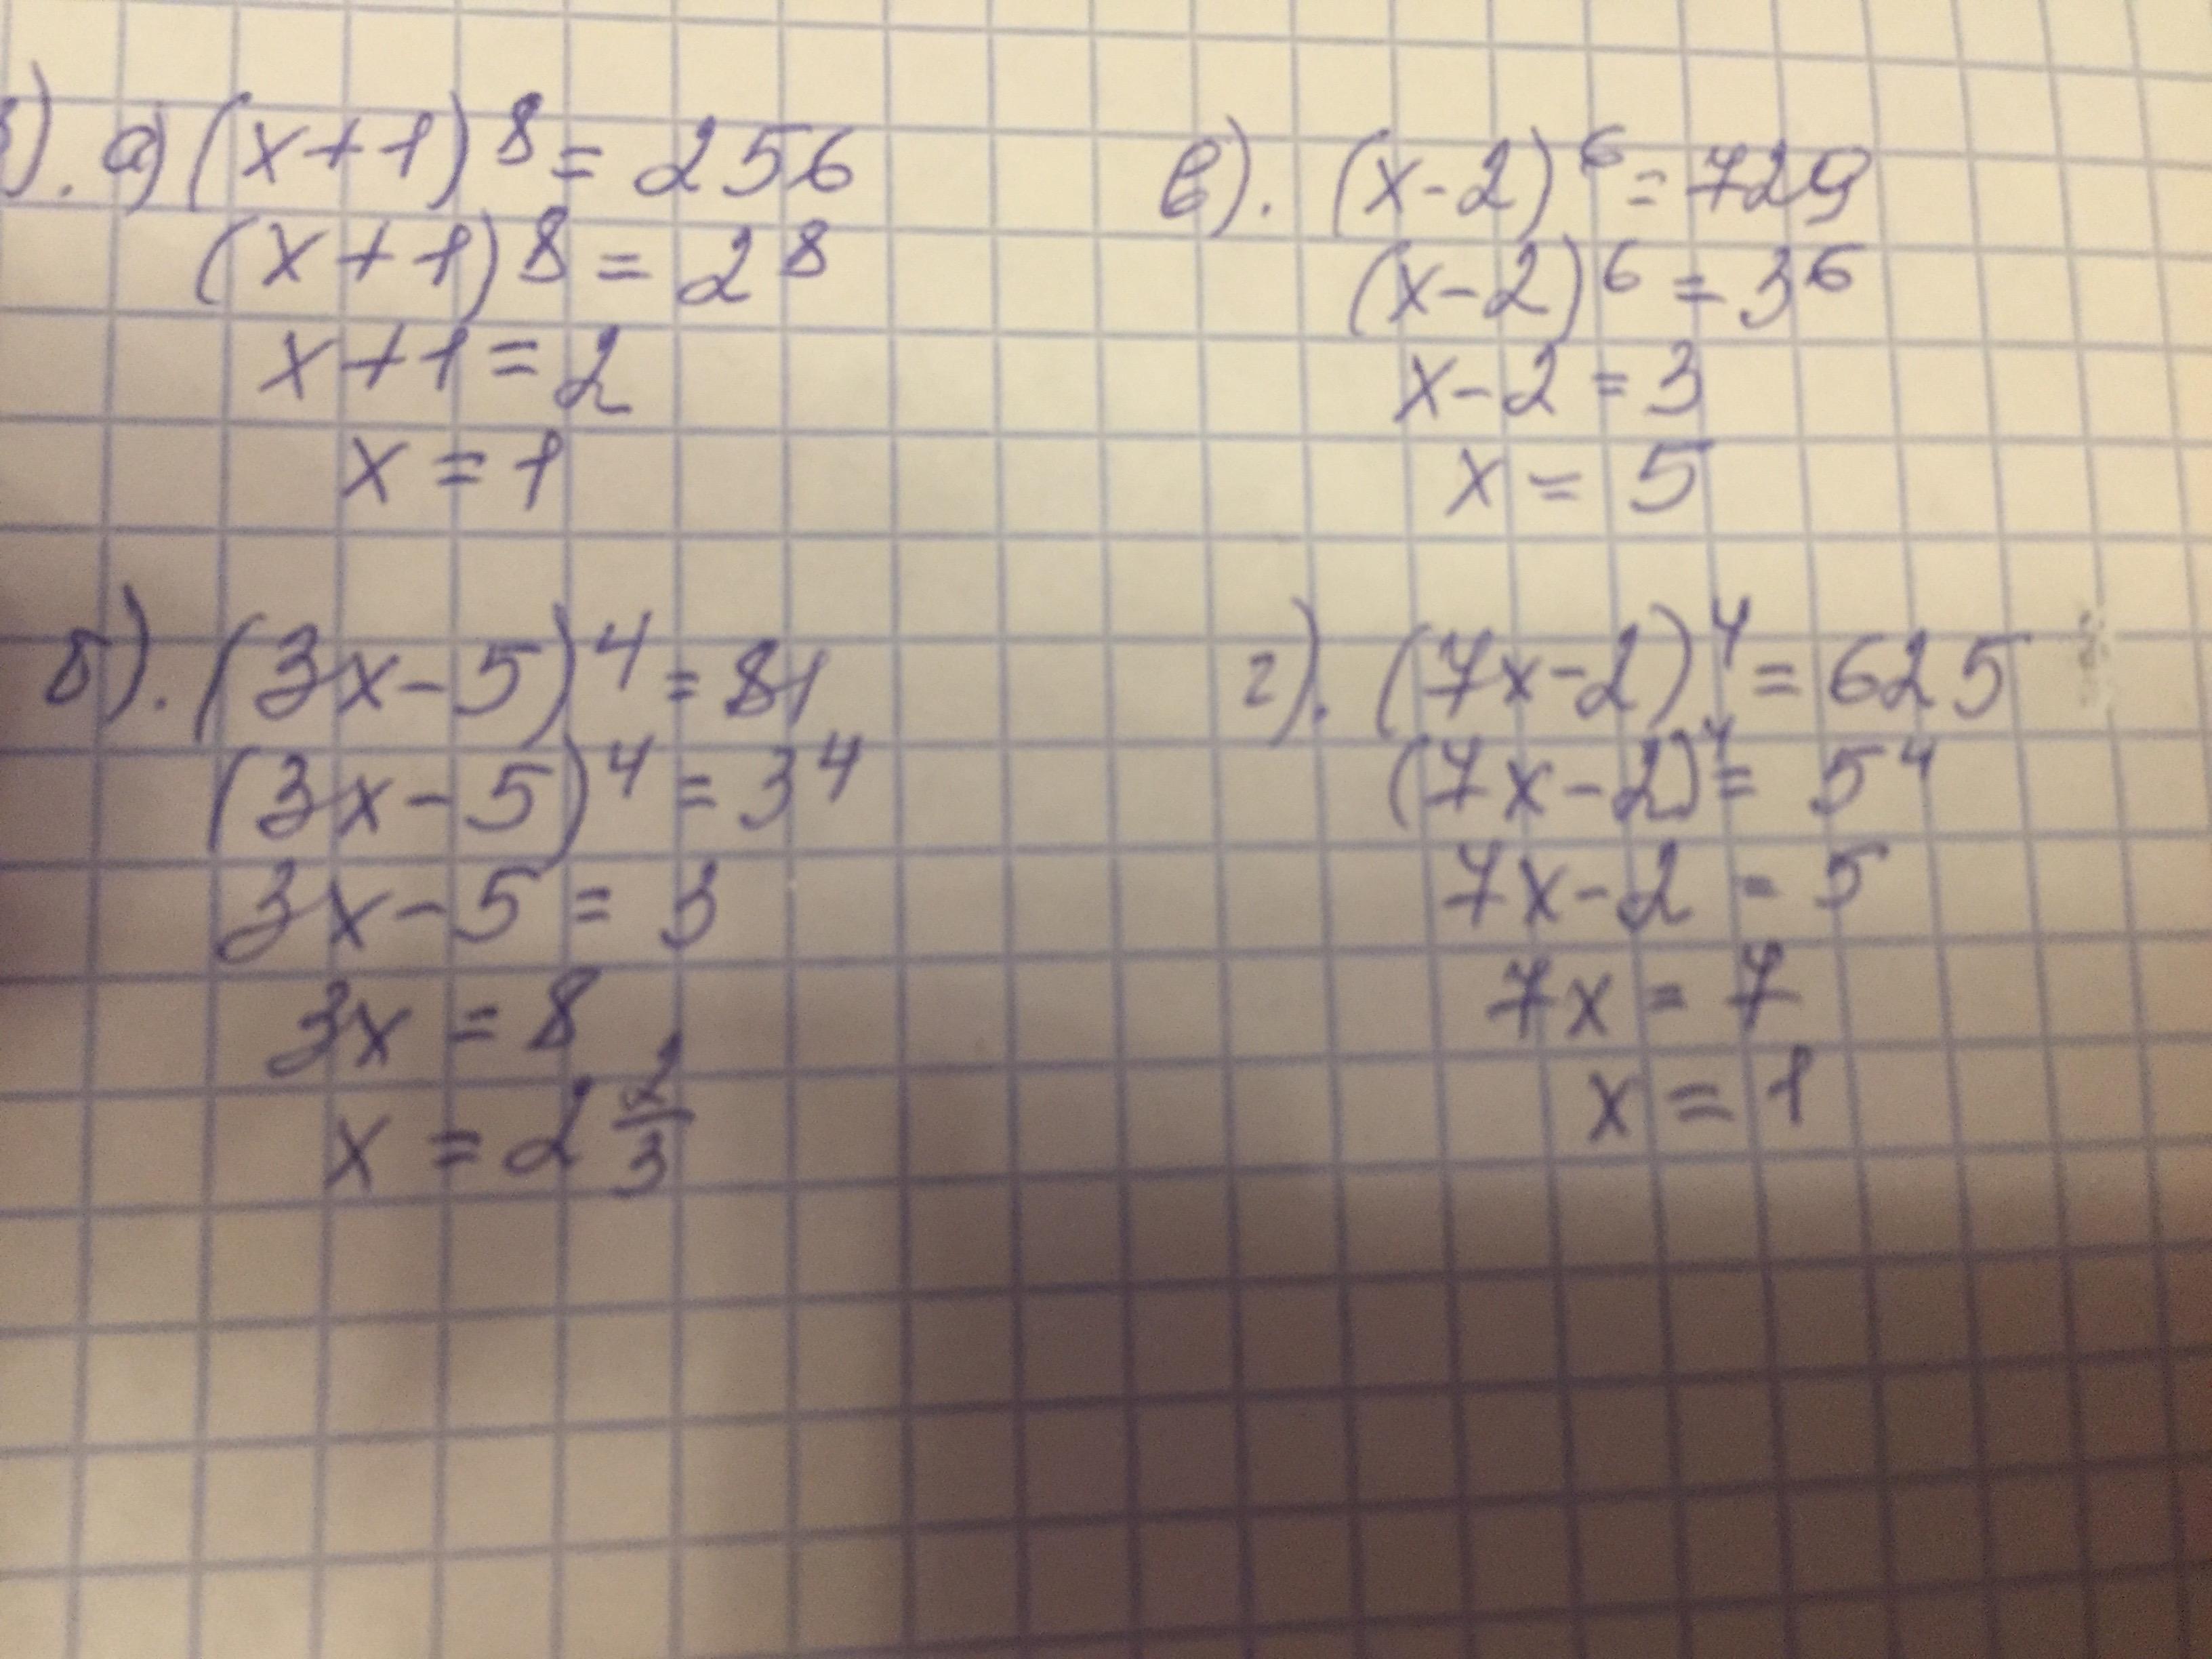 ). а) (x+1)^8 = 256
(x+1)^8 = 2^8
x+1 = 2
x = 1
б). (3x-5)^4 = 81
(3x-5)^4 = 3^4
3x-5 = 3
3x = 8
x = 2 2/3
в). (x-2)^6 = 729
(x-2)^6 = 3^6
x-2 = 3
x = 5
г). (7x-2)^4 = 625
(7x-2)^4 = 5^4
7x-2 = 5
7x = 7
x = 1